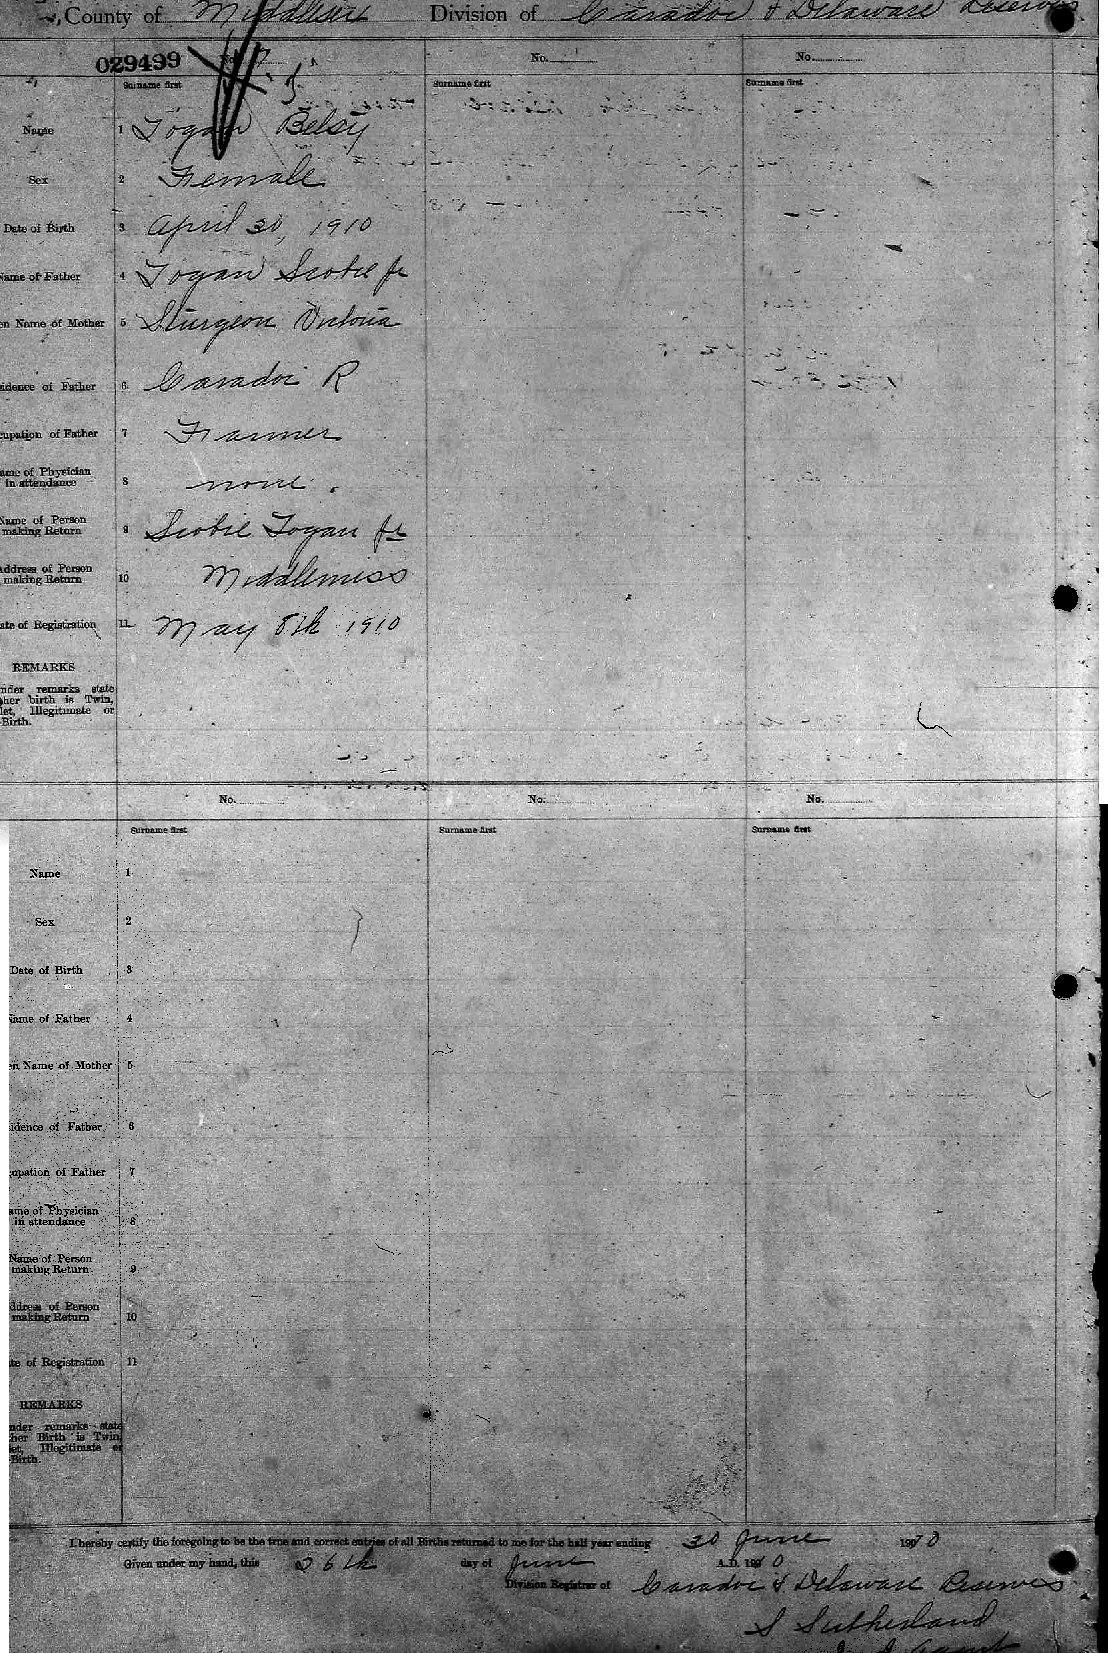 County of Middlesex Division of Caradoc & Delaware Reserves
029499 No. 7 No. No.
Surname first Surname first Surname first
Name 1 Logan Betsy
Sex 2 Female
Date of Birth 3 April 30, 1910
Name of Father 4 Logan Scobie Jr
en Name of Mother 5 Sturgeon Victoria
idence of Father 6 Caradoc R
cupation of Father 7 Farmer
ame of Physician
in attendance 8 none.
Name of Person
making Return 9 Scobie Logan Jr
Address of Person
making Return 10 Middlemiss
ate of Registration 11 May 8th 1910
REMARKS
nder remarks state
her birth is Twin,
let, Illegitimate or
-Birth.
No. No. No.
Surname first Surname first Surname first
Name 1
Sex 2
Date of Birth 3
Name of Father 4
en Name of Mother 5
idence of Father 6
upation of Father 7
ame of Physician
in attendance 8
Name of Person
making Return 9
ddress of Person
making Return 10
te of Registration 11
REMARKS
nder remarks state
her Birth is Twin,
let, Illegitimate or
-Birth.
I hereby certify the foregoing to be the true and correct entries of all Births returned to me for the half year ending 30 June 1910
Given under my hand, this 26th day of June A.D. 1910
Division Registrar of Caradoc & Delaware Reserves
S Sutherland
Agent